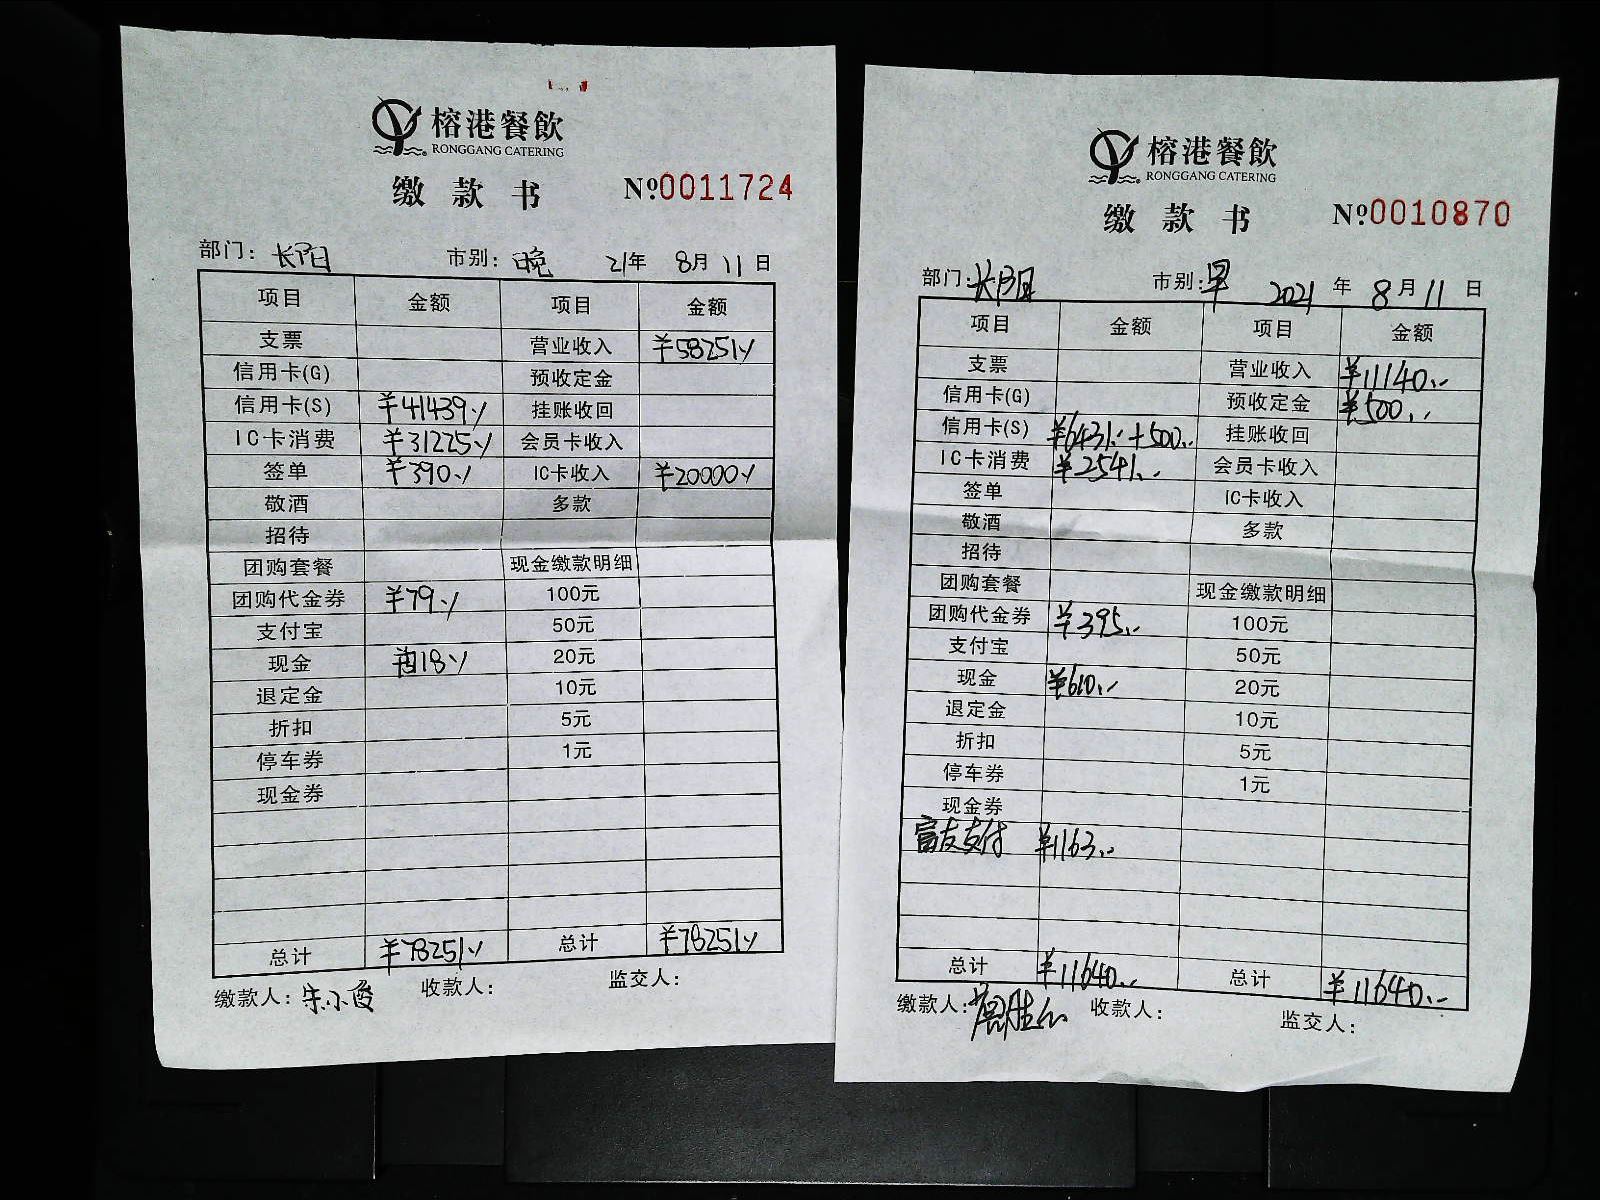 榕港餐飲
RONGGANG CATERING
缴款书 №0011724
部门: 长阳 市别: 晚 21年 8月 11日
项目 金额 项目 金额
支票 营业收入 ¥58251.-
信用卡(G) 预收定金
信用卡(S) ¥41439.- 挂账收回
IC卡消费 ¥31225.- 会员卡收入
签单 ¥390.- IC卡收入 ¥20000.-
敬酒 多款
招待
团购套餐 现金缴款明细
团购代金券 ¥79.- 100元
支付宝 50元
现金 20元
退定金 10元
折扣 5元
停车券 1元
现金券
总计 ¥78251.- 总计 ¥78251.-
缴款人: 宋小俊 收款人: 监交人:
榕港餐飲
RONGGANG CATERING
缴款书 №0010870
部门: 长阳 市别: 早 2021年 8月 11日
项目 金额 项目 金额
支票 营业收入 ¥11140.-
信用卡(G) 预收定金 ¥500.-
信用卡(S) ¥6431.-+500.- 挂账收回
IC卡消费 ¥2541.- 会员卡收入
签单 IC卡收入
敬酒 多款
招待
团购套餐 现金缴款明细
团购代金券 ¥395.- 100元
支付宝 50元
现金 ¥610.- 20元
退定金 10元
折扣 5元
停车券 1元
现金券
富友支付 ¥1163.-
总计 ¥11640.- 总计 ¥11640.-
缴款人: 收款人: 监交人: